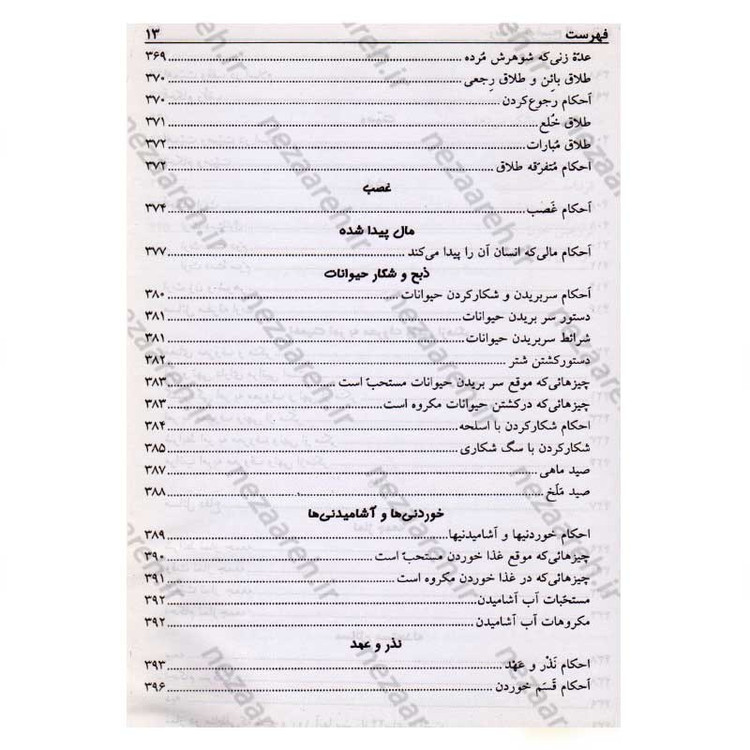 فهرست ۱۳
عدّهٔ زنی‌که شوهرش مُرده ۳۶۹
طلاق بائِن و طلاق رِجعی ۳۷۰
اَحکام رجوع‌کردن ۳۷۰
طلاق خُلع ۳۷۱
طلاق مُبارات ۳۷۲
احکام مُتفرّقه طلاق ۳۷۲
غصب
اَحکام غَصب ۳۷۴
مال پیدا شده
اَحکام مالی‌که انسان آن را پیدا می‌کند ۳۷۷
ذبح و شکار حیوانات
اَحکام سربریدن و شکارکردن حیوانات ۳۸۰
دستور سر بریدن حیوانات ۳۸۱
شرائط سربریدن حیوانات ۳۸۱
دستورکشتن شتر ۳۸۲
چیزهائی‌که موقع سر بریدن حیوانات مستحبّ است ۳۸۳
چیزهائی‌که درکشتن حیوانات مکروه است ۳۸۳
احکام شکارکردن با اسلحه ۳۸۴
شکارکردن با سگ شکاری ۳۸۵
صید ماهی ۳۸۷
صید مَلَخ ۳۸۸
خوردنی‌ها و آشامیدنی‌ها
احکام خوردنیها و آشامیدنیها ۳۸۹
چیزهائی‌که موقع غذا خوردن مستحبّ است ۳۹۰
چیزهائی‌که در غذا خوردن مکروه است ۳۹۱
مستحّبات آب آشامیدن ۳۹۲
مکروهات آب آشامیدن ۳۹۲
نذر و عهد
احکام نَذْر و عَهْد ۳۹۳
اَحکام قَسَم خوردن ۳۹۶
nezaareh.ir